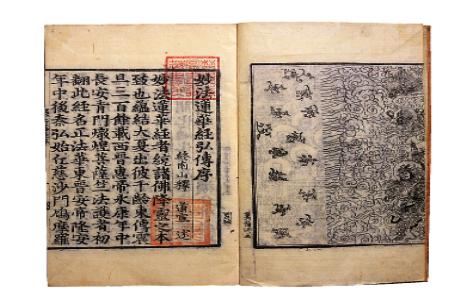 妙法蓮華經弘傳序
終南山釋 道宣 述
妙法蓮華經者統諸佛降靈之本
致也蘊結大夏出彼千齡東傳震
旦三百餘載西晉惠帝永康年中
長安青門燉煌菩薩竺法護者初
翻此經名正法華東晉安帝隆安
年中後秦弘始慈沙門鳩摩羅